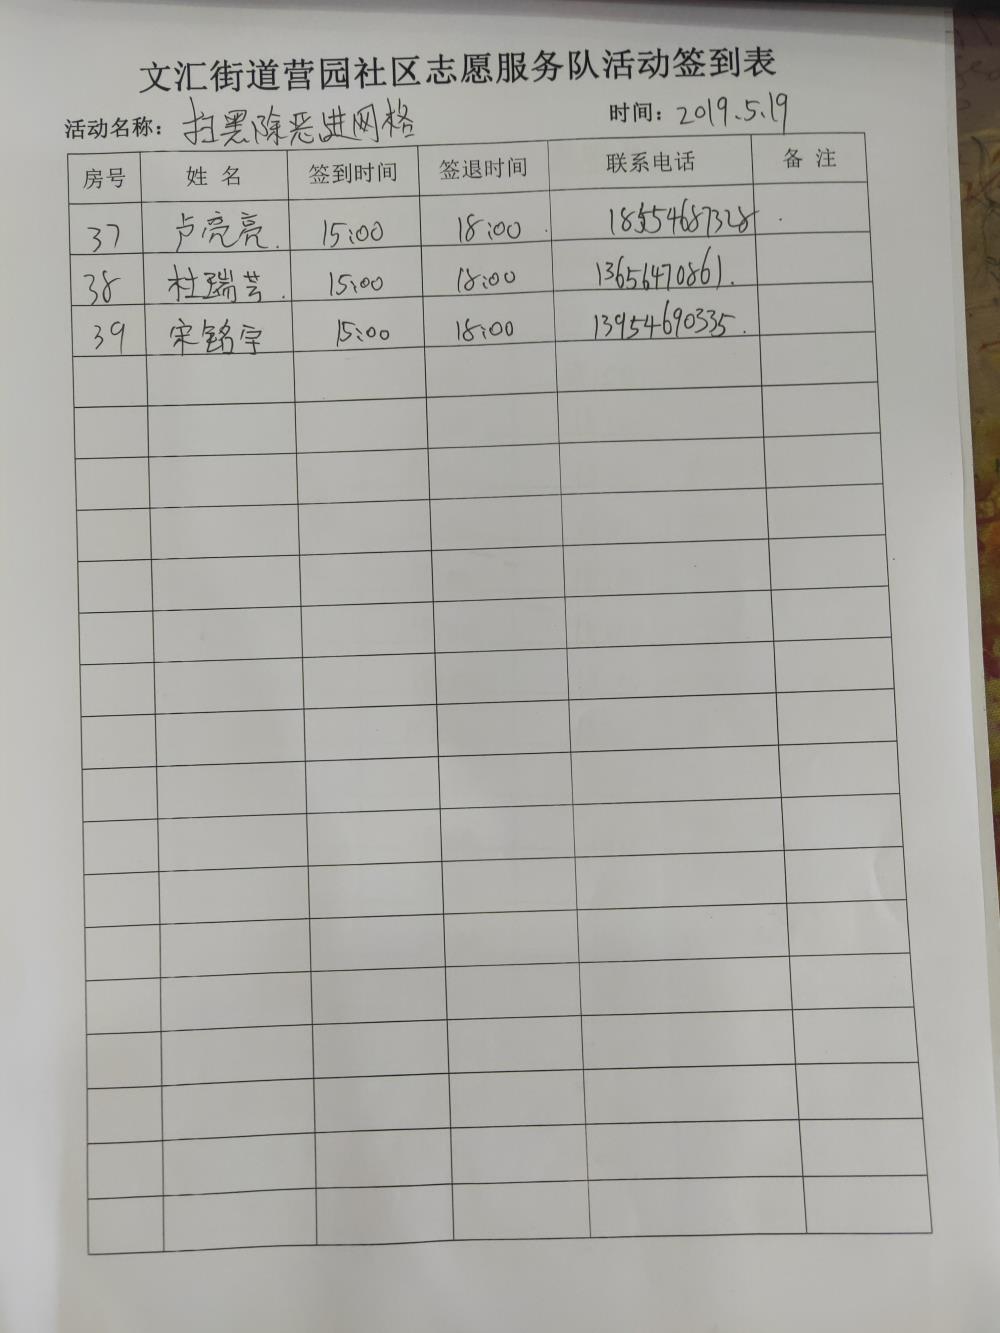 文汇街道营园社区志愿服务队活动签到表
活动名称：扫黑除恶进网格 时间：2019.5.19
房号 姓名 签到时间 签退时间 联系电话 备注
37 卢亮亮. 15:00 18:00. 18554687328
38 杜瑞芸. 15:00 18:00 13656470861.
39 宋铭宇 15:00 18:00 13954690335.